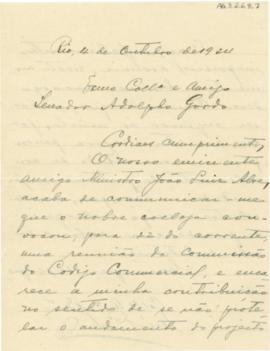 Rio, 4 de Outubro de 1924
Exmo Colla e Amigo
Senador Adolpho Gordo
Cordiaes cumprimentos,
O nosso eminente
amigo Ministro João Luiz Alves,
acaba de communicar-me
que o nobre collega con-
vocou, para 22 do corrente,
uma reunião da Commissão
do Codigo Commercial, e enca
rece a minha contribuição
no sentido de se não prote
lar o andamento do projecto